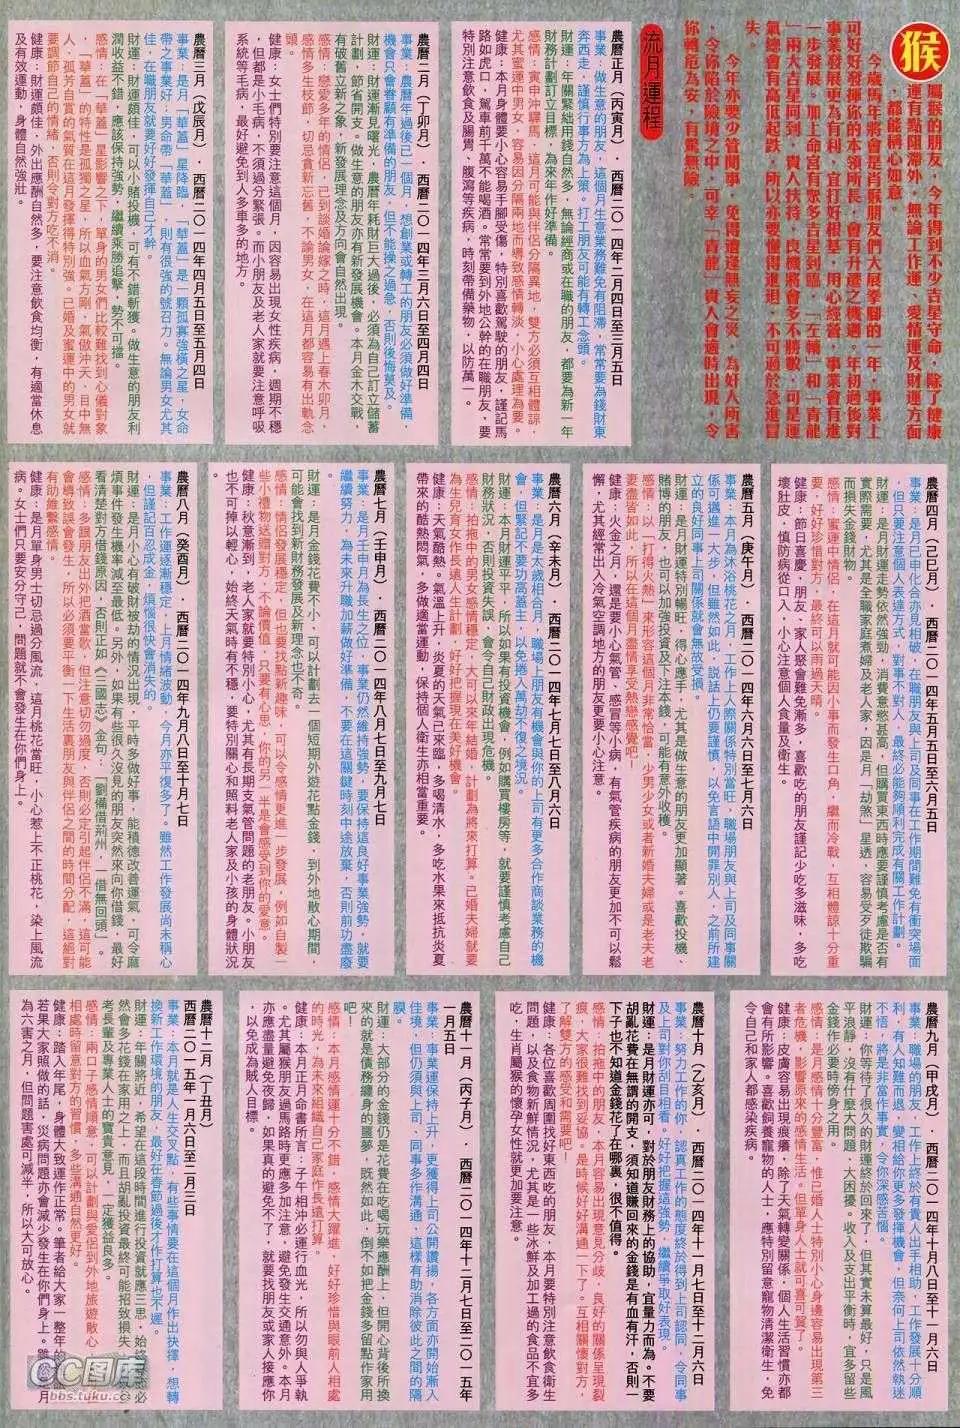 猴
屬猴的朋友，今年得到不少吉星守命，除了健康
運有點阻滯外，無論工作運、愛情運及財運方面
，都能稱心如意。
今歲馬年將會是肖猴朋友們大展拳腳的一年，事業上
可好好發揮你的本領所長，會有升遷之機遇。年初過後對
事業發展更為有利，宜打好根基，用心經營，事業會有進
一步發展。加上命宮有眾多吉星到臨，「左輔」和「青龍
」兩大吉星同到，貴人扶持，良機將會多不勝數，可是運
氣總會有高低起跌，所以亦要懂得進退，不可過於急進冒
失
今年亦要少管閒事，免得遭逢無妄之災，為奸人所害
，令你陷於險境之中，可幸「青龍」貴人會適時出現，令
你轉危為安，有驚無險。
流月運程
農曆正月（丙寅月），西曆二〇一四年二月四日至三月五日
事業：做生意的朋友，這個月生意業務難免有阻滯，常常要為錢財東
奔西走，謹慎行事方為上策。打工朋友可能有轉工念頭。
財運：年關緊絀用錢自然多，無論經商或在職的朋友，都要為新一年
財政計劃訂立目標，為來年作好準備。
感情：寅申沖驛馬，這月可能與伴侶分隔異地，雙方必須互相體諒，
尤其蜜運中男女，容易因分隔兩地而導致感情轉淡，小心處理為要。
健康：本月身體要小心容易手腳受傷，特別喜歡駕駛的朋友，謹記馬
路如虎口，駕車前千萬不能喝酒。常常要到外地公幹的在職朋友，要
特別注意飲食及腸胃、腹瀉等疾病，時刻帶備藥物，以防萬一。
農曆二月（丁卯月），西曆二〇一四年三月六日至四月四日
事業：農曆年過後已一個月，想創業或轉工的朋友必須做好準備，
機會只會眷顧有準備的朋友，但不能操之過急，否則後悔莫及。
財運：財運漸見曙光，農曆年耗財巨大過後，必須為自己訂立儲蓄
計劃，節省開支。做生意的朋友亦有新發展機會。本月金木交戰，
有破舊立新之象，新發展理念及方向會自然出現。
感情：戀愛多年的情侶，已到談婚論嫁之時，這月遇上春木卯月，
感情多生枝節，切忌貪新忘舊，不論男女，在這月都容易有出軌念
頭。
健康：女士們特別要注意這個月，因容易出現女性疾病，週期不穩
，但都是小毛病，不須過分緊張。而小朋友及老人家就要注意呼吸
系統等毛病，最好避免到人多車多的地方。
農曆三月（戊辰月），西曆二〇一四年四月五日至五月四日
事業：是月「華蓋」星降臨，「華蓋」是一顆孤寡強橫之星，女命
帶之事業好，男命帶「華蓋」，則有很強的號召力。無論男女尤其
佳，在職朋友就要好好發揮自己才幹。
財運：財運頗佳，可以小賭投機，可有不錯斬獲。做生意的朋友利
潤收益不錯，應該保持強勢，繼續乘勝追擊，勢不可擋。
感情：在「華蓋」星影響之下，單身的男女們比較難找到心儀對象
，「華蓋」的特性是孤獨之星，所以血氣方剛，氣傲沖天，目中無
人，孤芳自賞的氣質在這月發揮得特別強。已婚及蜜運中的男女就
要調節自己的情緒，否則令對方吃不消。
健康：財運頗佳，外出應酬自然多，要注意飲食均衡，有適當休息
及有效運動，身體自然強壯。
農曆四月（己巳月），西曆二〇一四年五月五日至六月五日
事業：是月巳申化合亦見相破，在職朋友與上司及同事在工作期間難免有衝突場面
，但只要注意個人表達方式，對事不對人，最終必能夠順利完成有關工作計劃。
財運：是月財運走勢依然強勁，消費意慾甚高，但購買東西時應要謹慎考慮是否有
實際需要，尤其是全職家庭煮婦及老人家，因是月「劫煞」星透，容易受歹徒欺騙
而損失金錢財物。
感情：蜜運中情侶，在這月就可能因小事而發生口角，繼而冷戰，互相體諒十分重
要，好好珍惜對方，最終可以雨過天晴。
健康：節日喜慶，朋友、家人聚會難免漸多，喜歡吃的朋友謹記少吃多滋味，多吃
壞肚皮，慎防病從口入，小心注意個人食量及衛生。
農曆五月（庚午月），西曆二〇一四年六月六日至七月六日
事業：本月為沐浴桃花之月，工作上人際關係特別當旺，職場朋友與上司及同事關
係可邁進一大步，但雖然如此，說話上仍要謹慎，以免言語中開罪別人，之前所建
立的良好同事上司關係就會無故受損。
財運：是月財運特別暢旺，得心應手，尤其是做生意的朋友更加顯著。喜歡投機、
賭博的朋友，也可以加強投資及下注本錢，可能有意外收穫。
感情：以「打得火熱」來形容這個月非常恰當，少男少女或者新婚夫婦或是老夫老
妻盡皆如此，所以在這個月盡情享受熱戀感覺吧！
健康：火金之月，還是要小心氣管、感冒等小病，有氣管疾病的朋友更加不可以鬆
懈，尤其經常出入冷氣空調地方的朋友更要小心注意。
農曆六月（辛未月），西曆二〇一四年七月七日至八月六日
事業：是月是太歲相合月，職場上朋友有機會與你的上司有更多合作商談業務的機
會，但緊記不要功高蓋主，以免捲入萬劫不復之境況。
財運：本月財運平平，所以如果有投資機會，例如購買樓房等，就要謹慎考慮自己
財務狀況，否則投資失誤，會令自己財政出現危機。
感情：拍拖中的男女感情穩定，大可以來年結婚，計劃為將來打算。已婚夫婦就要
為生兒育女作長遠人生計劃，好好把握現在美好機會。
健康：天氣酷熱。氣溫上升，炎夏的天氣已來臨，多喝清水，多吃水果來抵抗炎夏
帶來的酷熱悶氣，多做適當運動，保持個人衛生亦相當重要。
農曆七月（壬申月），西曆二〇一四年八月七日至九月七日
事業：是月壬申月為長生之位，事業仍然維持強勢，要保持這良好事業強勢，就要
繼續努力，為未來升職加薪做好準備，不要在這關鍵時刻中途放棄，否則前功盡廢
。
財運：是月金錢花費不小，可以計劃去一個短期外遊花點金錢，到外地散心期間，
可能會找到新財務發展及新理念也不奇。
感情：情侶發展穩定，但也要找點新趣味，可以令感情更進一步發展，例如自製一
些小禮物送贈對方，不論價值，只要有心思，你的另一半是會感受到你的愛意。
健康：秋意漸到，老人家就要特別小心，尤其有長期支氣管問題的老朋友。小朋友
也不可掉以輕心，始終天氣時有不穩，要特別關心和照料老人家及小孩的身體狀況
。
農曆八月（癸酉月），西曆二〇一四年九月八日至十月七日
事業：工作運逐漸穩定，上月情緒波動，今月亦平復多了。雖然工作發展尚未稱心
，但謹記百忍成金，煩惱很快會消失的。
財運：是月小心有破財被劫的情況出現，平時多做好事，能積德改善運氣，可令麻
煩事件發生機率減至最低。另外，如果有些很久沒見的朋友突然來向你借錢，最好
看清楚對方借錢原因，否則正如《三國志》金句：「劉備借荊州，一借無回頭」。
感情：多跟朋友出外把酒當歌，但注意切勿過度，否則必定引起伴侶不滿，這可能
會導致誤會發生，所以必須要平衡一下生活裏朋友與伴侶之間的時間分配，這絕對
有助維繫感情。
健康：是月單身男士切忌過分風流，這月桃花當旺，小心惹上不正桃花，染上風流
病。女士們只要安分守己，問題就不會發生在你們身上。
農曆九月（甲戌月），西曆二〇一四年十月八日至十一月六日
事業：職場的朋友，工作上終於有貴人出手相助，工作發展十分順
利，有人知難而退，變相給你更多發揮機會，但奈何上司依然執迷
不悟，將是非當作事實，令你深感苦惱。
財運：你等待了很久的財運終於回來了，但其實未算最好，只是風
平浪靜，沒有什麼大問題，大困擾。收入及支出平衡時，宜多留些
金錢作必要時傍身之用。
感情：是月感情十分豐富，惟已婚人士特別小心身邊容易出現第三
者危機，影響原來的感情生活。但單身人士就可喜可賀了。
健康：皮膚容易出現痕癢，除了天氣轉變關係，個人生活習慣亦都
會有所影響。喜歡飼養寵物的人士，應特別留意寵物清潔衛生，免
令自己和家人都感染疾病。
農曆十月（乙亥月），西曆二〇一四年十一月七日至十二月六日
事業：努力工作的你，認真工作的態度終於得到上司認同，令同事
及上司對你刮目相看。好好把握這強勢，繼續爭取好表現。
財運：是月財運亦可，對於朋友財務上的協助，宜量力而為。不要
胡亂花費在無謂的開支，須知道賺回來的金錢是有血有汗，否則一
下子也不知道金錢花了在哪裏，很不值得。
感情：本月容易出現意見分歧，良好的關係呈現裂
痕，大家很難找到妥協。是時候好好溝通一下了。互相關懷對方，
了解雙方的感受和需要吧！
健康：各位喜歡周圍找好東西吃的朋友，本月要特別注意飲食衛生
問題，以及食物新鮮情況，尤其是一些冰鮮及加工過的食品不宜多
吃，生肖屬猴的懷孕女性就更加要注意。
農曆十一月（丙子月），西曆二〇一四年十二月七日至二〇一五年
一月五日
事業：事業運保持上升，更獲得上司公開讚揚，各方面亦開始漸入
佳境，但仍須與上司、同事多作溝通，這樣有助消除彼此之間的隔
膜。
財運：大部分的金錢仍是花費在吃喝玩樂應酬上，但開心背後所換
來的就是債務纏身的噩夢，既然如此，倒不如把金錢多留點作家用
吧！
感情：本月感情運十分不錯，感情大躍進，好好珍惜與眼前人相處
的時光，為未來組織自己家庭作長遠打算。
健康：本月正月命書所言：子午相沖必運行血光，所以勿與人爭執
。尤其屬猴朋友過馬路時更應多加注意，避免發生交通意外。本月
亦應盡量避免夜歸，如果真的避免不了，就要找朋友或家人接應你
，以免成為賊人目標。
農曆十二月（丁丑月）
西曆二〇一五年一月六日至二月三日
事業：本月就是人生交叉點，有些事情要在這個月作出抉擇，想轉
換新工作環境的朋友，最好在春節過後才作打算也不遲。
財運：年關將近，希望在這段時間進行投資就應三思，始
然會多花錢在家用之上，而且胡亂投資最終可能招致損失
考長輩及專業人士的寶貴意見，一定獲益良多。
感情：兩口子感情相當愜意，可以計劃與愛侶到外地旅遊散心
相處時留意對方的習慣，多些溝通自然更好。
健康：踏入年尾，身體大致運作正常。筆者給大家一整年的
若果大家照做的話，災病問題亦會減少發生在你們身上。
為六害之月，但問題害處可減半，所以大可放心。
CC图库
bbs.tuku.cc